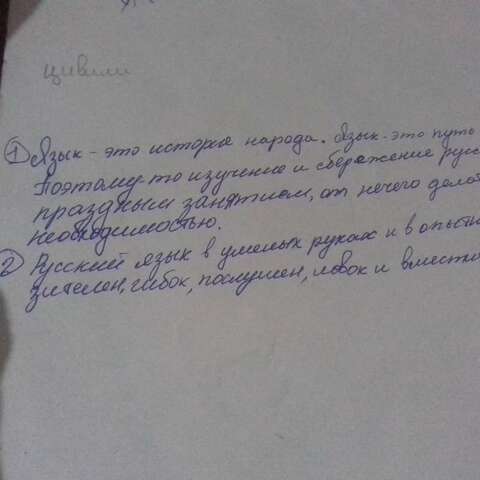 цивили
① Язык - это история народа. Язык - это путь
Поэтому то изучение и сбережение русс
праздным занятием, от нечего дела
необходимостью.
② Русский язык в умелых руках и в опытн
зителен, гибок, послушен, ловок и вместит